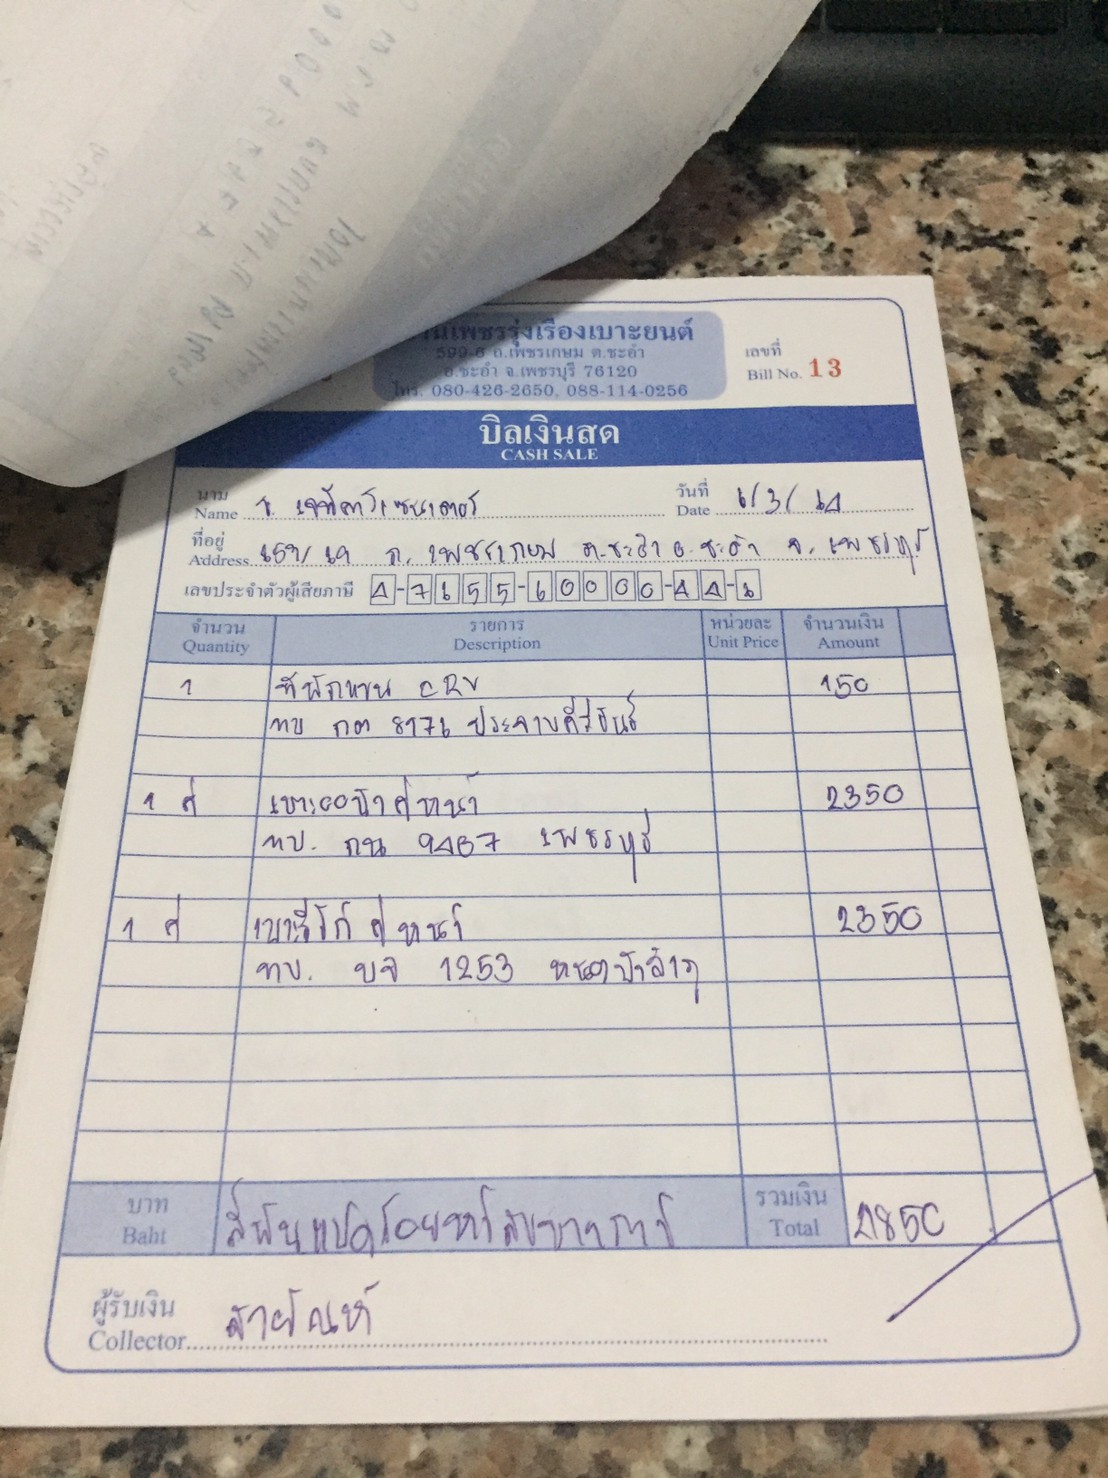 านเพชรรุ่งเรืองเบาะยนต์
599-6 ถ.เพชรเกษม ต.ชะอำ
อ.ชะอำ จ.เพชรบุรี 76120
โทร. 080-426-2650, 088-114-0256
เลขที่
Bill No. 13
บิลเงินสด
CASH SALE
นาม
Name
วันที่
Date 6/3/64
ที่อยู่
Address ถ. เพชรเกษม ต.ชะอำ อ.ชะอำ จ. เพชรบุรี
เลขประจำตัวผู้เสียภาษี
จำนวน รายการ หน่วยละ จำนวนเงิน
Quantity Description Unit Price Amount
1 ที่พักแขน CRV 150
ทบ กต 8176 ประจวบคีรีขันธ์
1 คู่ คู่หน้า 2350
ทบ. กน 9487 เพชรบุรี
1 คู่ คู่หน้า 2350
ทบ. บจ 1253 หนองบัวลำภู
บาท สี่พันแปดร้อยห้าสิบบาทถ้วน รวมเงิน 4850
Baht Total
ผู้รับเงิน
Collector